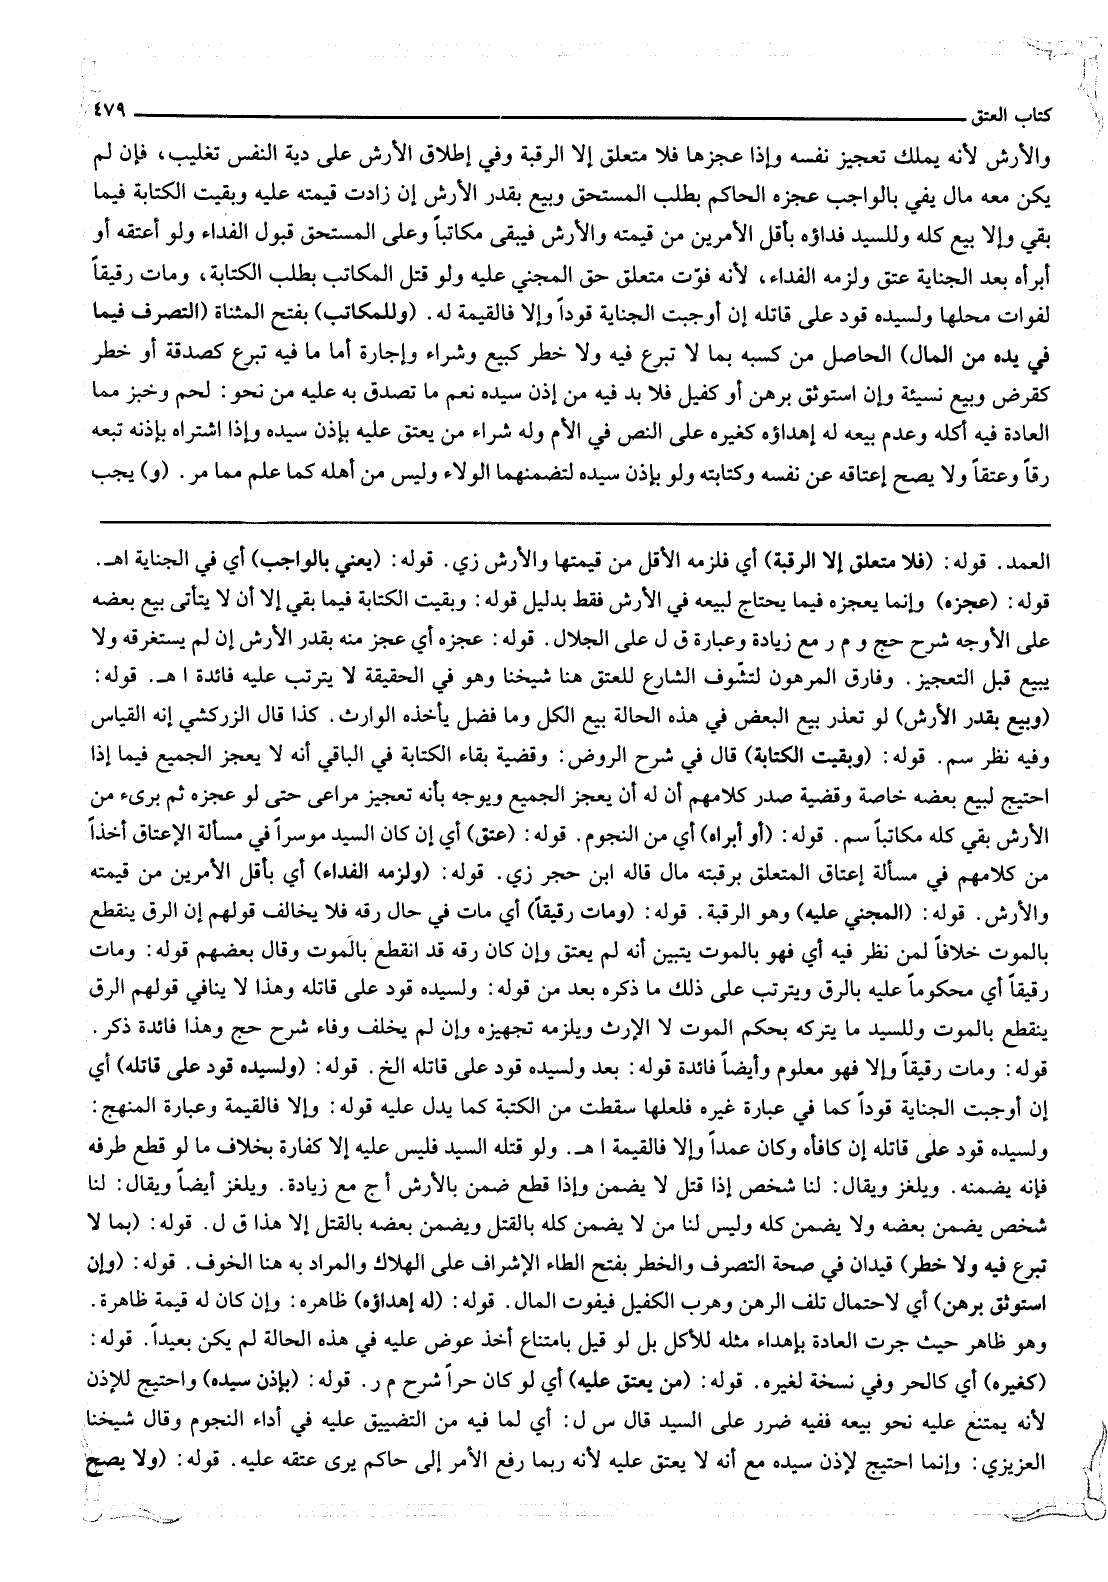 كتاب العتق ٤٧٩
والأرش لأنه يملك تعجيز نفسه وإذا عجزها فلا متعلق إلا الرقبة وفي إطلاق الأرش على دية النفس تغليب، فإن لم
يكن معه مال يفي بالواجب عجزه الحاكم بطلب المستحق وبيع بقدر الأرش إن زادت قيمته عليه وبقيت الكتابة فيما
بقي وإلا بيع كله وللسيد فداؤه بأقل الأمرين من قيمته والأرش فيبقى مكاتباً وعلى المستحق قبول الفداء ولو أعتقه أو
أبرأه بعد الجناية عتق ولزمه الفداء، لأنه فوّت متعلق حق المجني عليه ولو قتل المكاتب بطلت الكتابة، ومات رقيقاً
لفوات محلها ولسيده قود على قاتله إن أوجبت الجناية قوداً وإلا فالقيمة له. (وللمكاتب) بفتح المثناة (التصرف فيما
في يده من المال) الحاصل من كسبه بما لا تبرع فيه ولا خطر كبيع وشراء وإجارة أما ما فيه تبرع كصدقة أو خطر
كقرض وبيع نسيئة وإن استوثق برهن أو كفيل فلا بد فيه من إذن سيده نعم ما تصدق به عليه من نحو: لحم وخبز مما
العادة فيه أكله وعدم بيعه له إهداؤه كغيره على النص في الأم وله شراء من يعتق عليه بإذن سيده وإذا اشتراه بإذنه تبعه
رقاً وعتقاً ولا يصح إعتاقه عن نفسه وكتابته ولو بإذن سيده لتضمنهما الولاء وليس من أهله كما علم مما مر. (و) يجب
العمد. قوله: (فلا متعلق إلا الرقبة) أي فلزمه الأقل من قيمتها والأرش زي. قوله: (يعني بالواجب) أي في الجناية اهـ.
قوله: (عجزه) وإنما يعجزه فيما يحتاج لبيعه في الأرش فقط بدليل قوله: وبقيت الكتابة فيما بقي إلا أن لا يتأتى بيع بعضه
على الأوجه شرح حج و م ر مع زيادة وعبارة ق ل على الجلال. قوله: عجزه أي عجز منه بقدر الأرش إن لم يستغرقه ولا
يبيع قبل التعجيز. وفارق المرهون لتشّوف الشارع للعتق هنا شيخنا وهو في الحقيقة لا يترتب عليه فائدة ا هـ. قوله:
(وبيع بقدر الأرش) لو تعذر بيع البعض في هذه الحالة بيع الكل وما فضل يأخذه الوارث. كذا قال الزركشي إنه القياس
وفيه نظر سم. قوله: (وبقيت الكتابة) قال في شرح الروض: وقضية بقاء الكتابة في الباقي أنه لا يعجز الجميع فيما إذا
احتيج لبيع بعضه خاصة وقضية صدر كلامهم أن له أن يعجز الجميع ويوجه بأنه تعجيز مراعى حتى لو عجزه ثم برىء من
الأرش بقي كله مكاتباً سم. قوله: (أو أبراه) أي من النجوم. قوله: (عتق) أي إن كان السيد موسراً في مسألة الإعتاق أخذاً
من كلامهم في مسألة إعتاق المتعلق برقبته مال قاله ابن حجر زي. قوله: (ولزمه الفداء) أي بأقل الأمرين من قيمته
والأرش. قوله: (المجني عليه) وهو الرقبة. قوله: (ومات رقيقاً) أي مات في حال رقه فلا يخالف قولهم إن الرق ينقطع
بالموت خلافاً لمن نظر فيه أي فهو بالموت يتبين أنه لم يعتق وإن كان رقه قد انقطع بالموت وقال بعضهم قوله: ومات
رقيقاً أي محكوماً عليه بالرق ويترتب على ذلك ما ذكره بعد من قوله: ولسيده قود على قاتله وهذا لا ينافي قولهم الرق
ينقطع بالموت وللسيد ما يتركه بحكم الموت لا الإرث ويلزمه تجهيزه وإن لم يخلف وفاء شرح حج وهذا فائدة ذكر.
قوله: ومات رقيقاً وإلا فهو معلوم وأيضاً فائدة قوله: بعد ولسيده قود على قاتله الخ. قوله: (ولسيده قود على قاتله) أي
إن أوجبت الجناية قوداً كما في عبارة غيره فلعلها سقطت من الكتبة كما يدل عليه قوله: وإلا فالقيمة وعبارة المنهج:
ولسيده قود على قاتله إن كافأه وكان عمداً وإلا فالقيمة ا هـ. ولو قتله السيد فليس عليه إلا كفارة بخلاف ما لو قطع طرفه
فإنه يضمنه. ويلغز ويقال: لنا شخص إذا قتل لا يضمن وإذا قطع ضمن بالأرش أ ج مع زيادة. ويلغز أيضاً ويقال: لنا
شخص يضمن بعضه ولا يضمن كله وليس لنا من لا يضمن كله بالقتل ويضمن بعضه بالقتل إلا هذا ق ل. قوله: (بما لا
تبرع فيه ولا خطر) قيدان في صحة التصرف والخطر بفتح الطاء الإشراف على الهلاك والمراد به هنا الخوف. قوله: (وإن
استوثق برهن) أي لاحتمال تلف الرهن وهرب الكفيل فيفوت المال. قوله: (له إهداؤه) ظاهره: وإن كان له قيمة ظاهرة.
وهو ظاهر حيث جرت العادة بإهداء مثله للأكل بل لو قيل بامتناع أخذ عوض عليه في هذه الحالة لم يكن بعيداً. قوله:
(كغيره) أي كالحر وفي نسخة لغيره. قوله: (من يعتق عليه) أي لو كان حراً شرح م ر. قوله: (بإذن سيده) واحتيج للإذن
لأنه يمتنع عليه نحو بيعه ففيه ضرر على السيد قال س ل: أي لما فيه من التضييق عليه في أداء النجوم وقال شيخنا
العزيزي: وإنما احتيج لإذن سيده مع أنه لا يعتق عليه لأنه ربما رفع الأمر إلى حاكم يرى عتقه عليه. قوله: (ولا يصح